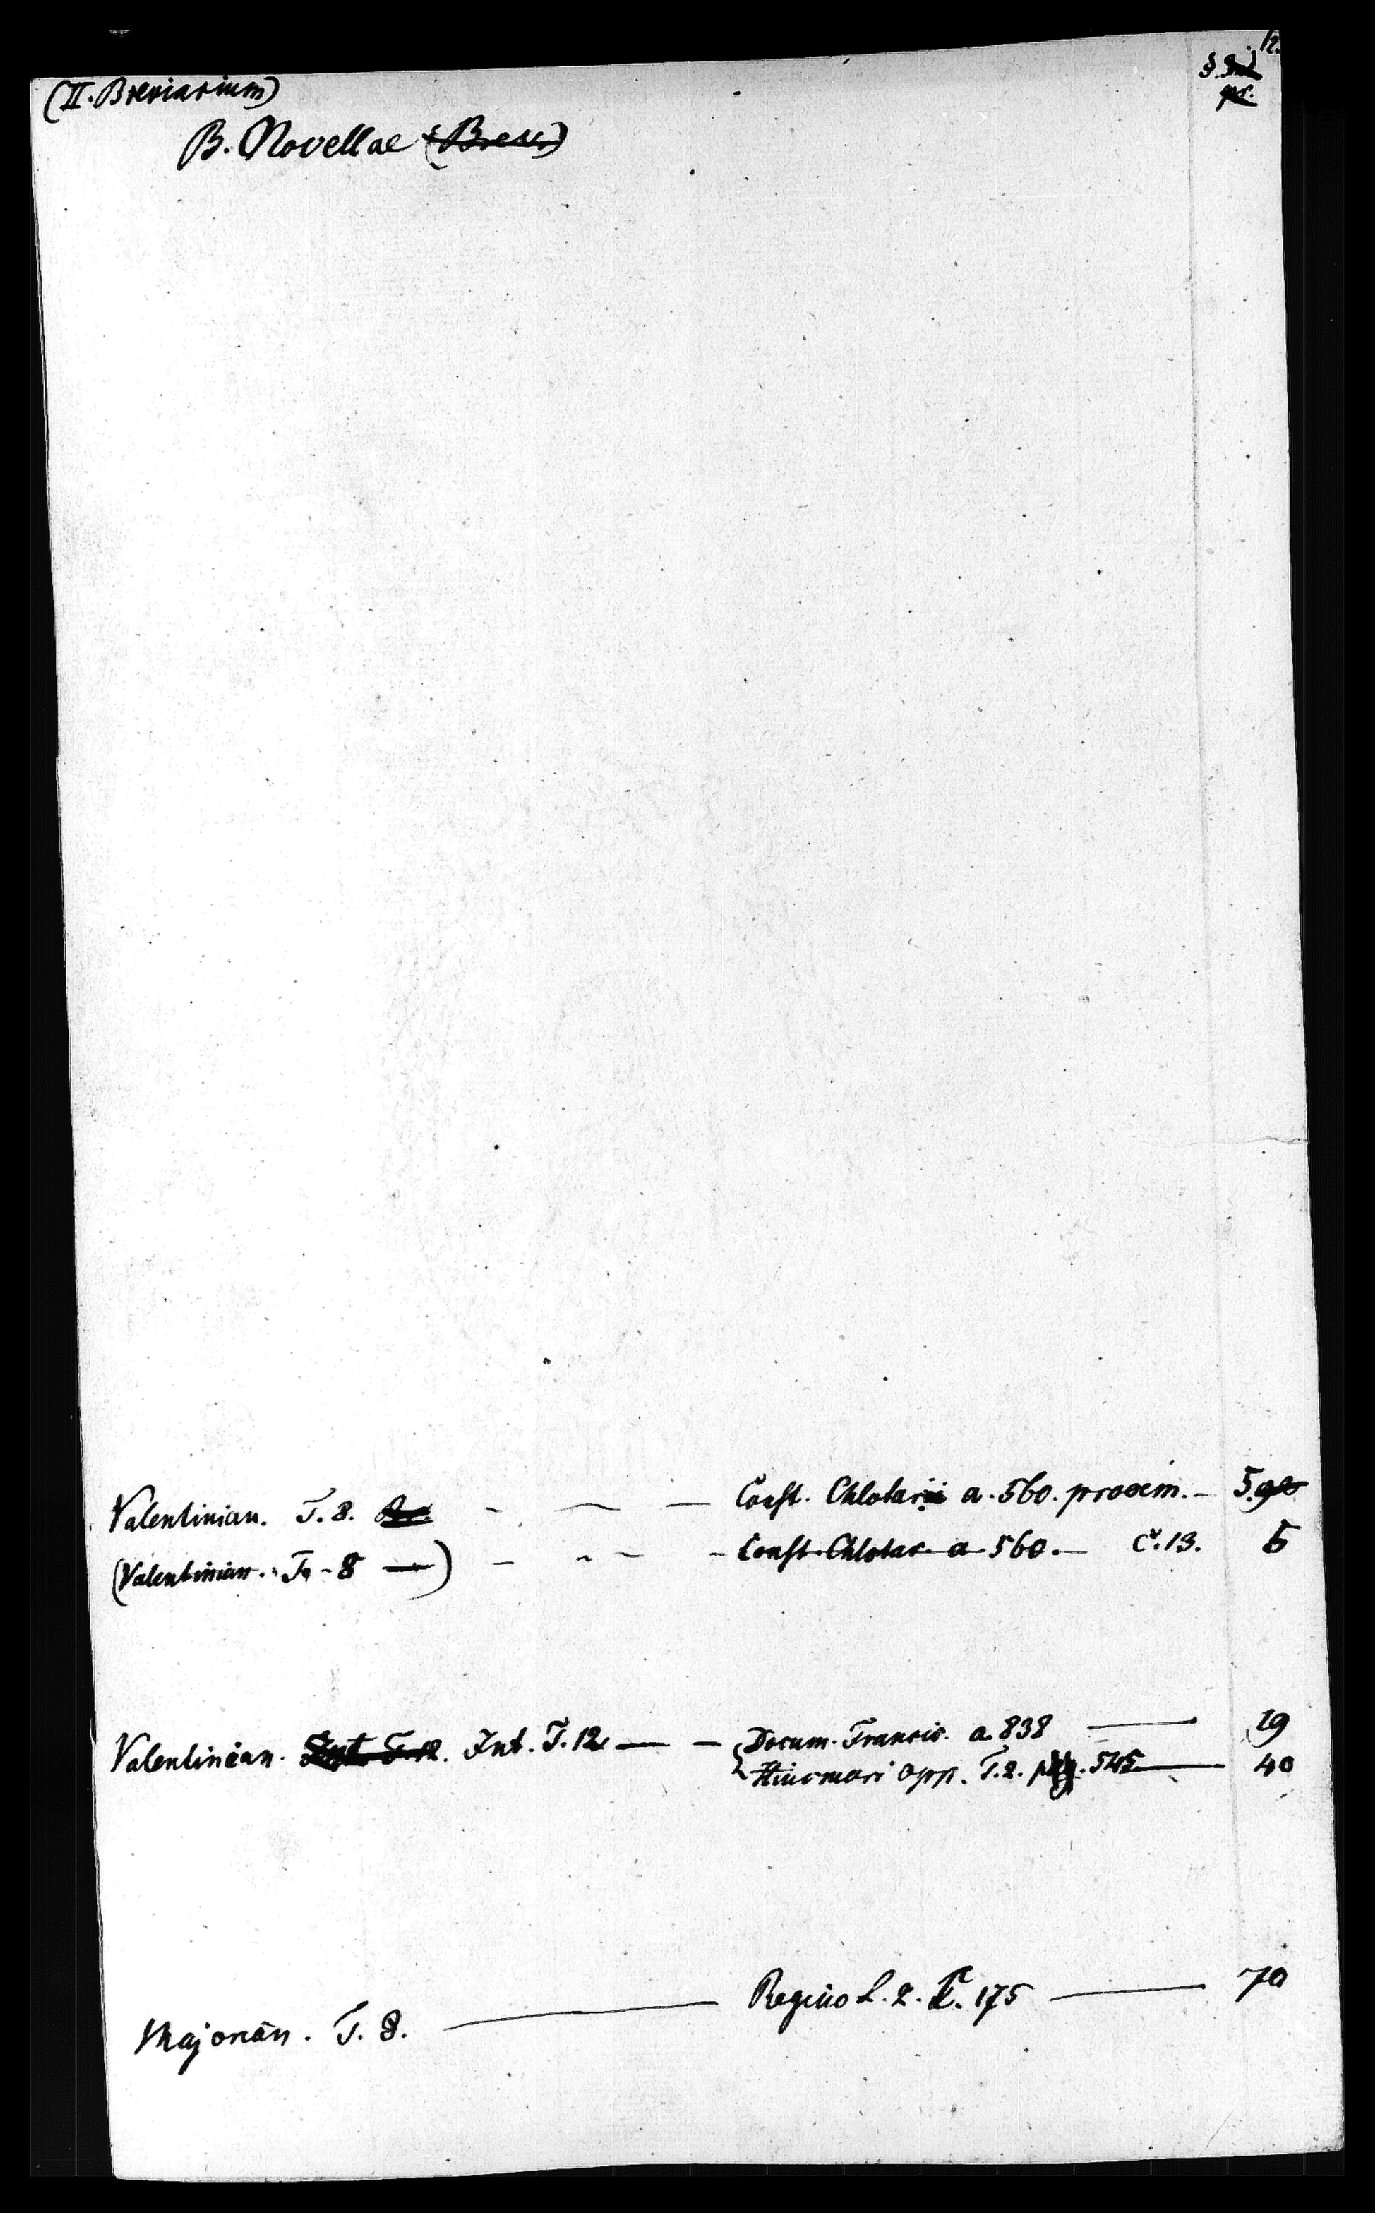 12.
(II. Breviarium)
B. Novellae (Brev.)
Valentinian. T. 8. — — — Const. Chlotarii a. 560. prooem. — 5.
(Valentinian. T. 8 —) — — — Const. Chlotar. a 560. — c. 13. 5
Valentinian. Int. T. 12. Int. T. 12 — — Docum. Francic. a. 838 — 19
Hincmari opp. T. 2. pag. 545 — 40
Majorian. T. 8. — Regino L. 2. C. 175 — 70